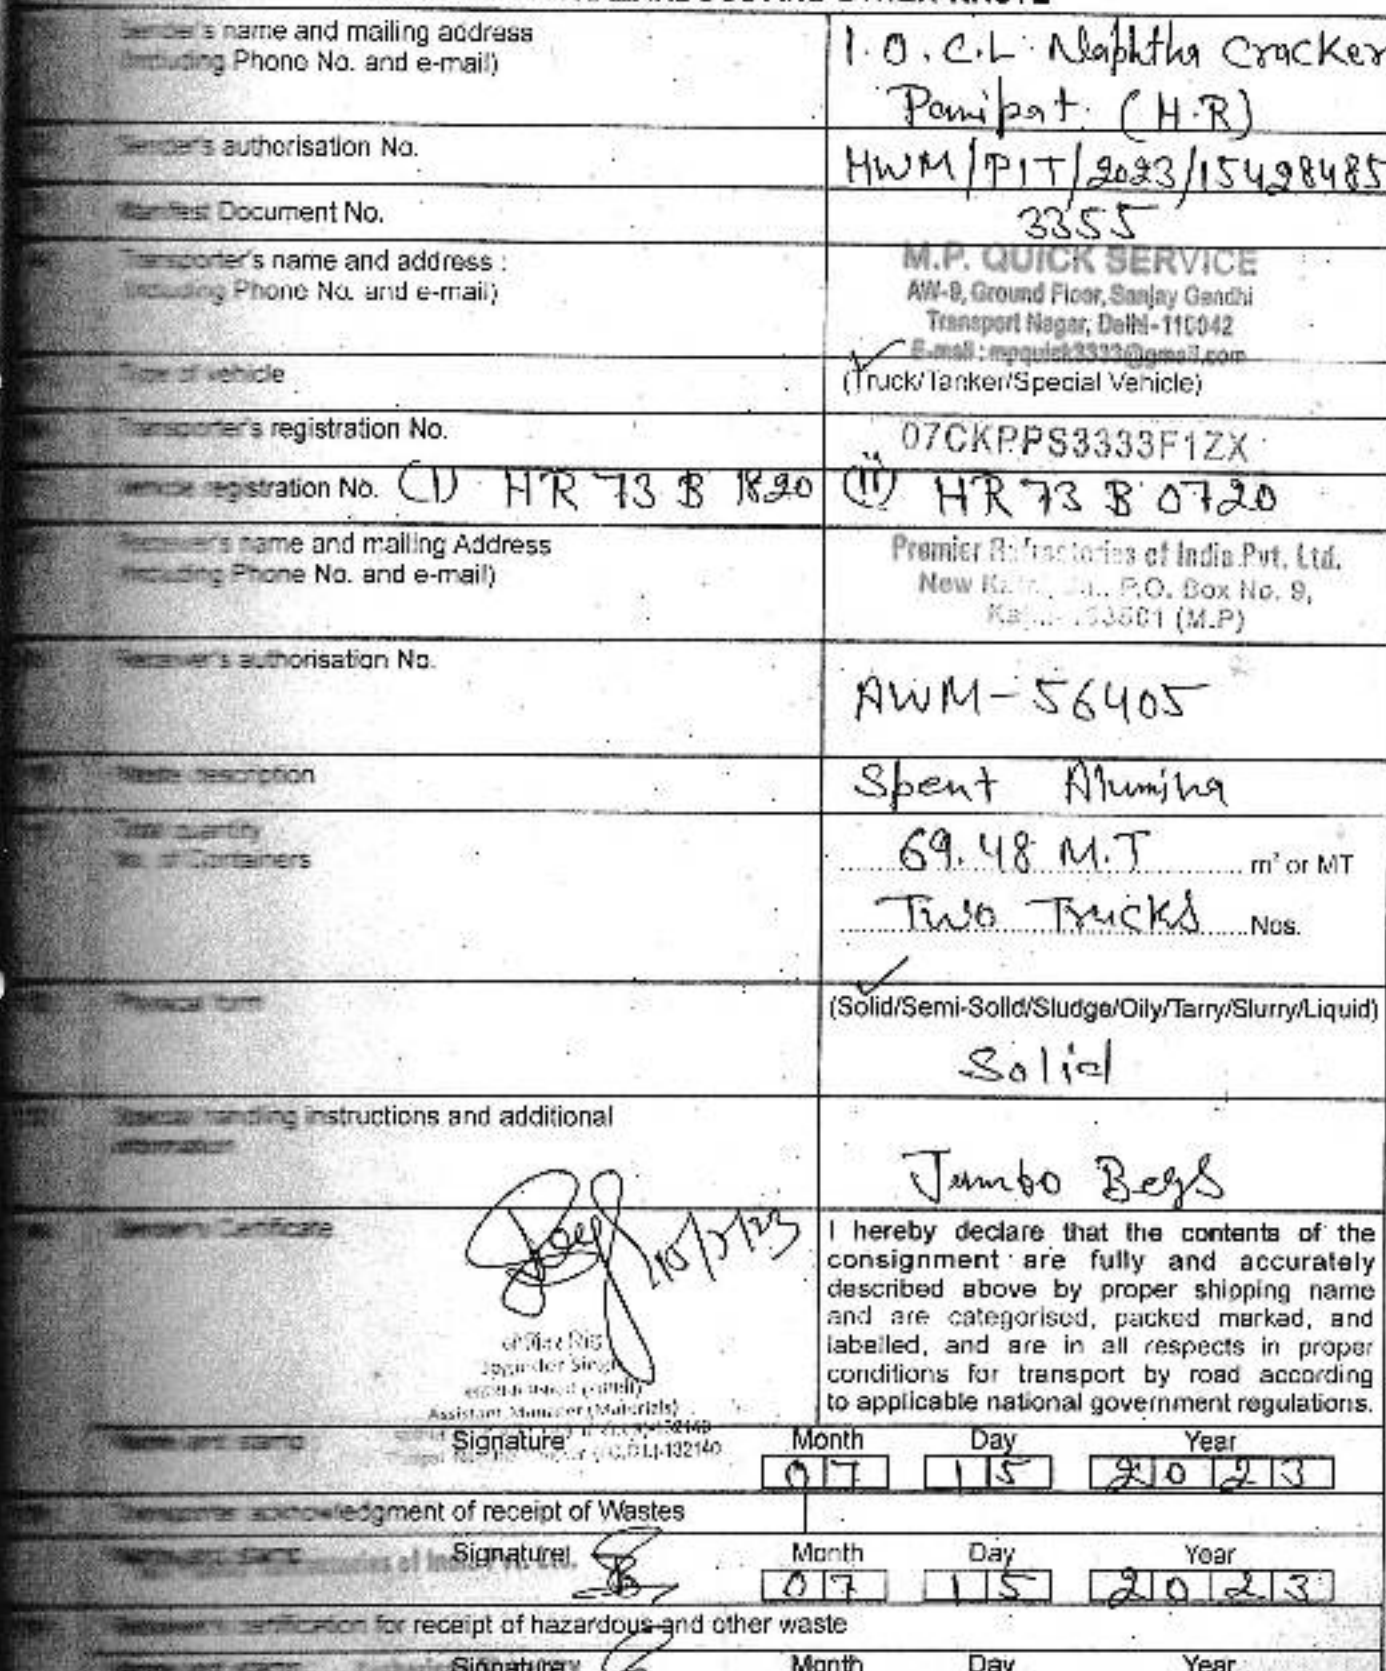 Sender's name and mailing address
(including Phone No. and e-mail)
I.O.C.L Naphtha Cracker
Panipat. (H.R)
Sender's authorisation No.
HWM/PIT/2023/15428485
Manifest Document No.
3355
Transporter's name and address :
(including Phone No. and e-mail)
M.P. QUICK SERVICE
AW-9, Ground Floor, Sanjay Gandhi
Transport Nagar, Delhi-110042
E-mail : mpquick3333@gmail.com
Type of vehicle
(Truck/Tanker/Special Vehicle)
Transporter's registration No.
07CKPPS3333F1ZX
Vehicle registration No. (i) HR 73 B 1820 (ii) HR 73 B 0720
Receiver's name and mailing Address
(including Phone No. and e-mail)
Premier Refractories of India Pvt. Ltd.
New P.O. Box No. 9,
(M.P)
Receiver's authorisation No.
AWM-56405
Waste description
Spent Alumina
Total quantity
No. of Containers
69.48 M.T m³ or MT
Two Trucks Nos.
Physical form
(Solid/Semi-Solid/Sludge/Oily/Tarry/Slurry/Liquid)
Solid
Special handling instructions and additional
information
Jumbo Bags
Sender's Certificate
I hereby declare that the contents of the
consignment are fully and accurately
described above by proper shipping name
and are categorised, packed marked, and
labelled, and are in all respects in proper
conditions for transport by road according
to applicable national government regulations.
15/7/23
Joginder Singh
Assistant Manager (Materials)
132140
Name and stamp Signature Month Day Year
07 15 2023
Transporter acknowledgment of receipt of Wastes
Name and stamp Signature Month Day Year
07 15 2023
Receiver's certification for receipt of hazardous and other waste
Name and stamp Signature Month Day Year